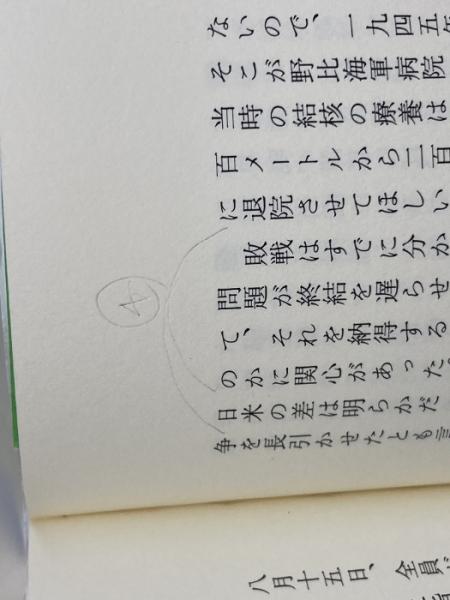 ないので、一九四五年
そこが野比海軍病院
当時の結核の療養は
百メートルから二百
に退院させてほしい
敗戦はすでに分か
問題が終結を遅らせ
て、それを納得する
のかに関心があった。
日米の差は明らかだ
争を長引かせたとも言
八月十五日、全員